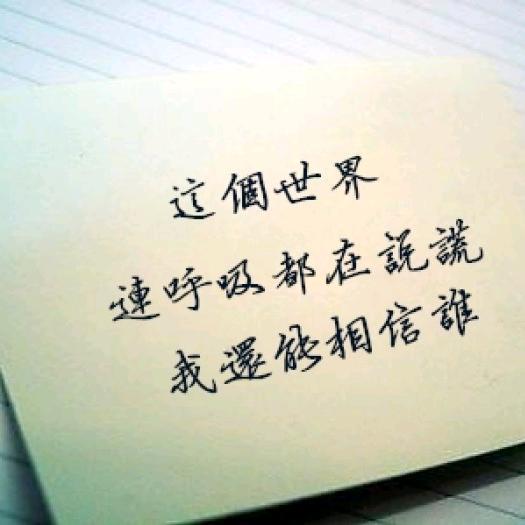 這個世界
連呼吸都在說謊
我還能相信誰